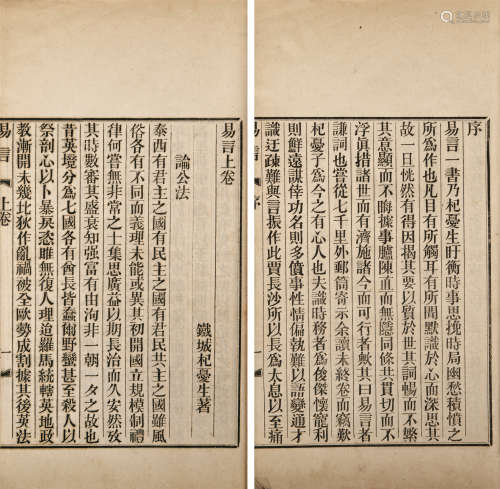 序
易言一書乃杞憂生盱衡時事思挽時局幽愁積憤之
所為作也凡目有所觸耳有所聞默識於心而深思其
故一旦恍然有得因揭其要以質於世其詞暢而不繁
其意顯而不晦據事臚陳直而無隱同條共貫切而不
浮眞措諸世而有濟施諸今而可行者歟其曰易言者
謙詞也嘗從七千里外郵筒寄示余讀未終卷而竊歎
杞憂子為今之有心人也夫識時務者為俊傑懷寵利
則鮮遠謀倖功名則多僨事性情偏執難以語變通才
識迂疎難與言振作此賈長沙所以長為太息以至痛
易言 序 一
易言上卷
鐵城杞憂生著
論公法
泰西有君主之國有民主之國有君民共主之國雖風
俗各有不同而義理未能或異其初開國立規模制禮
律何嘗無非常之士集思廣益以期長治而久安然攷
其時數審其盛衰知强富有由洵非一朝一夕之故也
昔英境分為七國各有酋長皆蠢爾野蠻甚至殺人以
祭剖心以卜暴戾恣睢無復人理迨羅馬統轄英地政
教漸開未幾北狄作亂禍被全歐勢成割據其後英法
易言 上卷 一